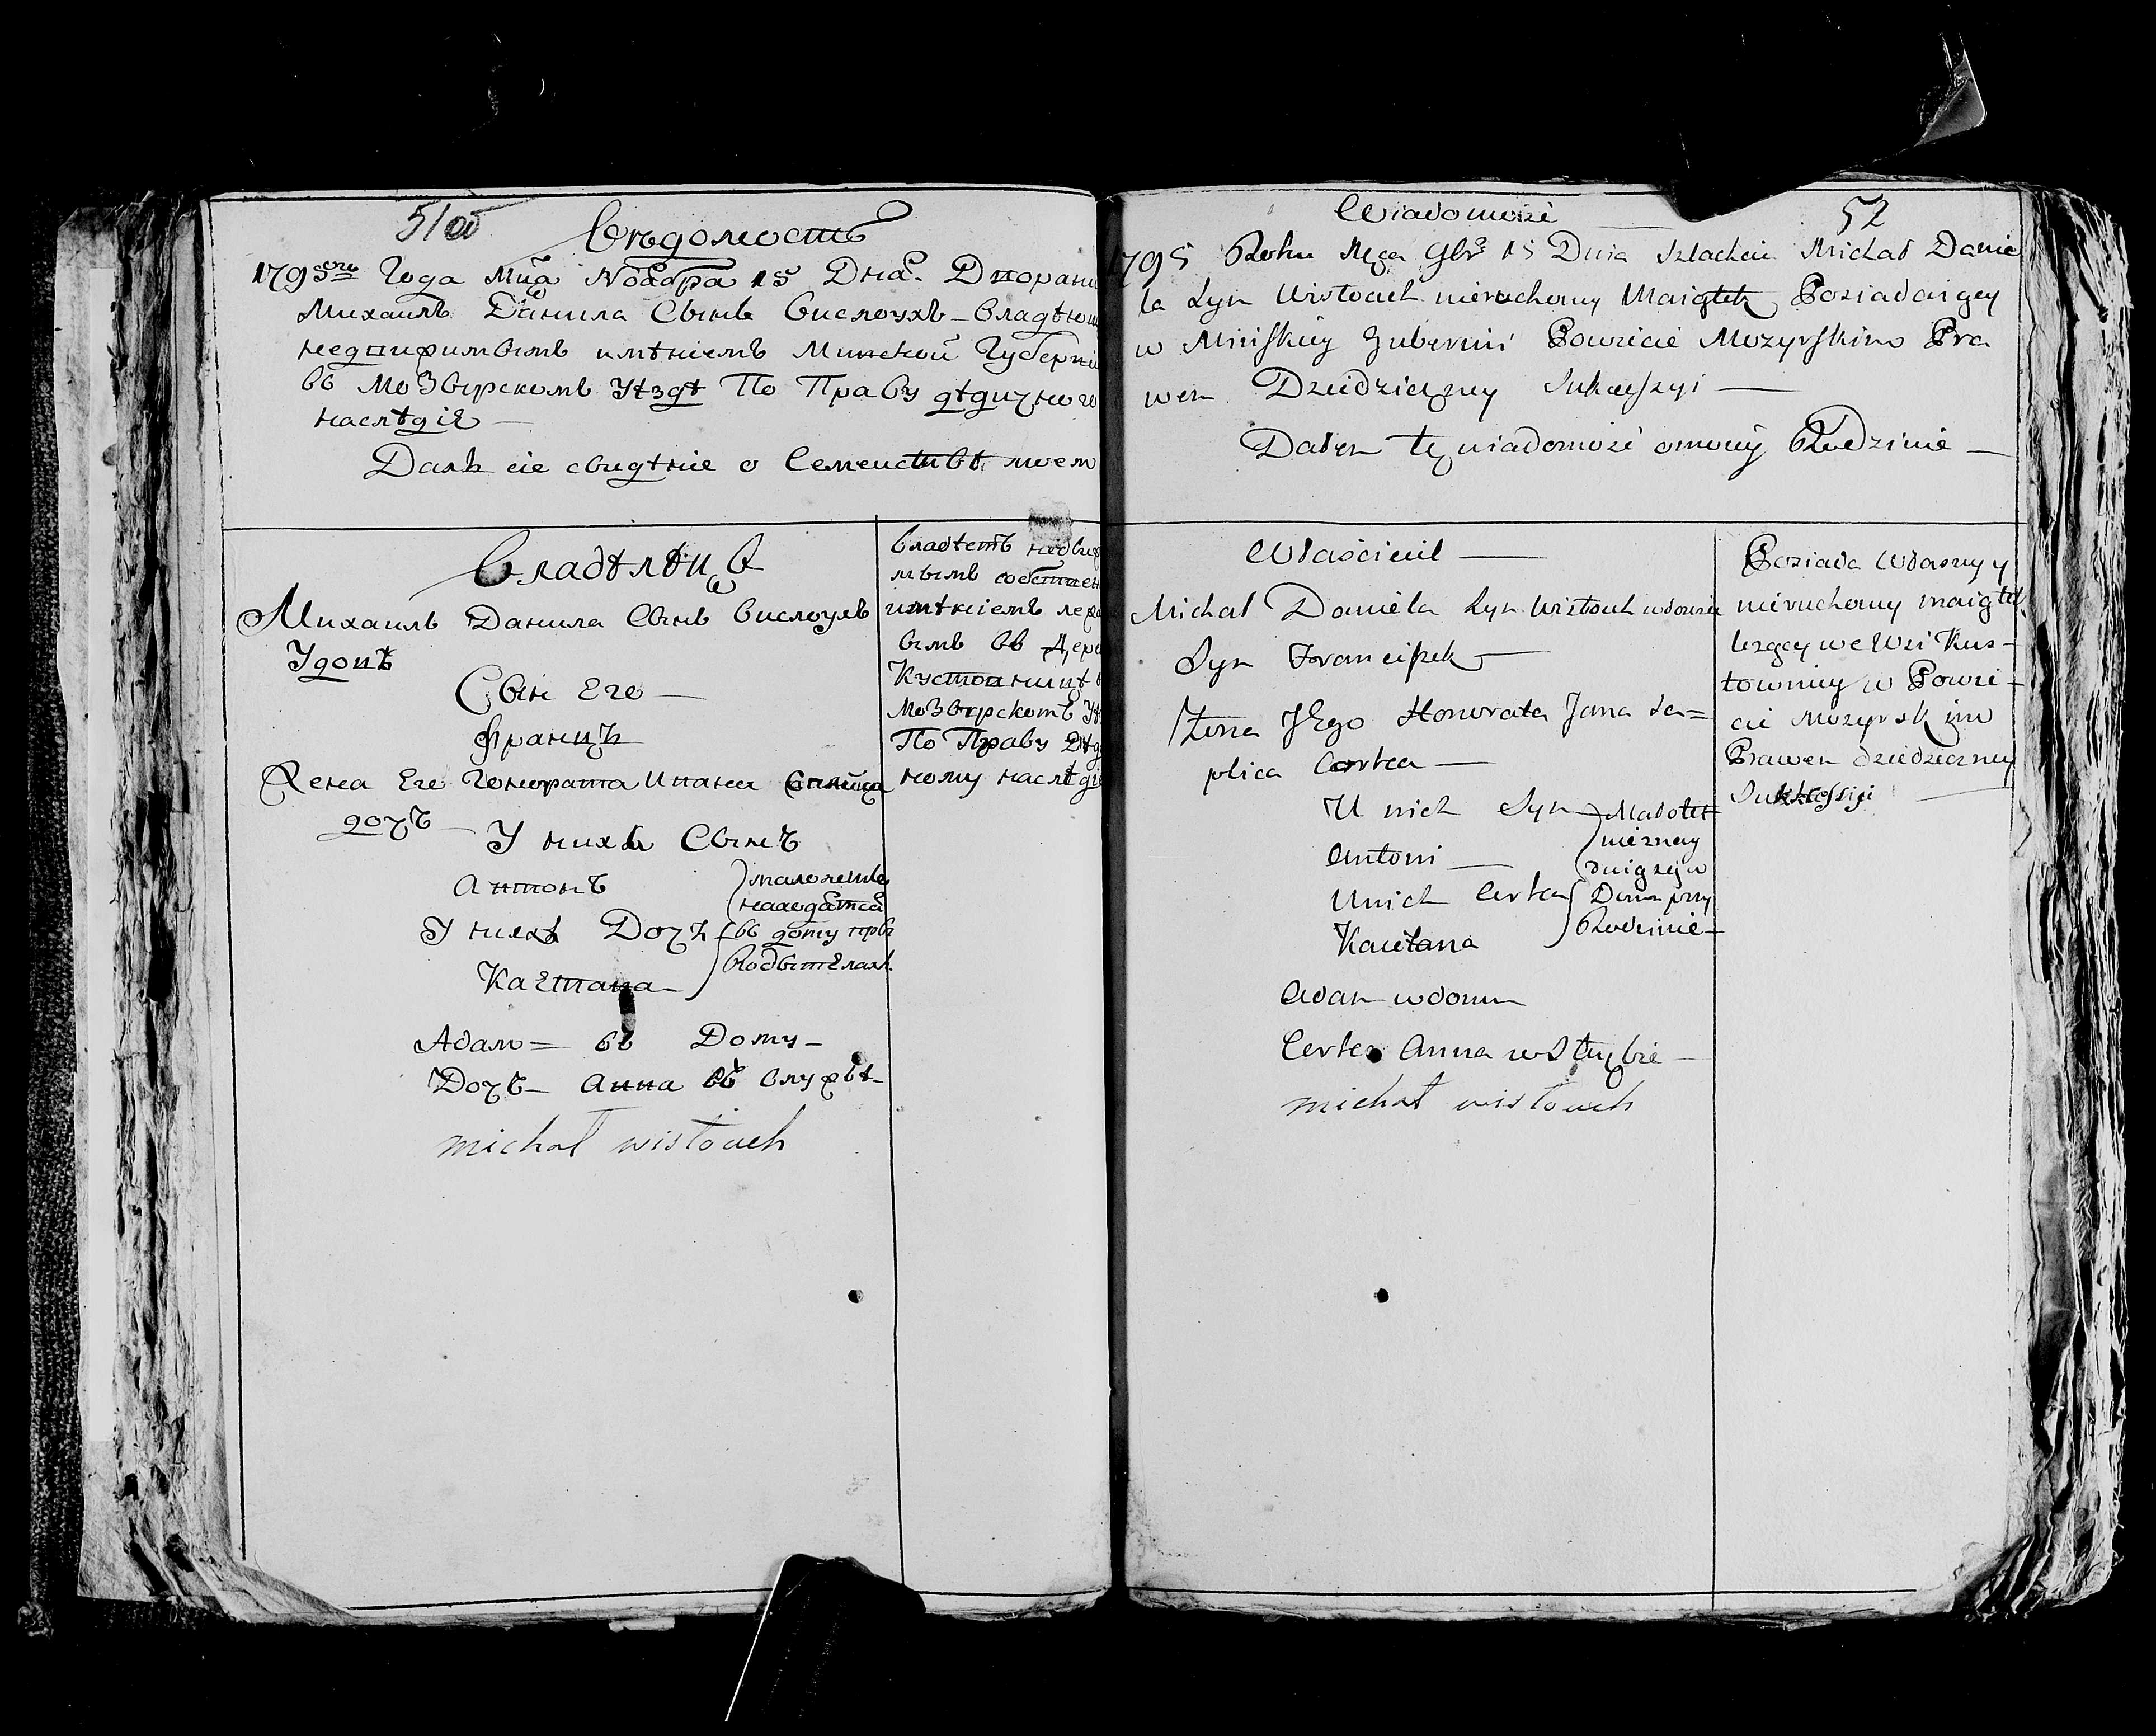 51об
Вѣдомость
1795го Года Мца Ноября 15 Дня. Дворани
Михаилъ Данила Сынъ Вислоухъ – Владѣющ
недвижимымъ имѣніемъ Минской Губерніи
въ Мозырскомъ Уѣздѣ По Праву дѣдичного
наслѣдія —
Далъ сіе свидѣніе о Семеиствѣ моем
Владѣлѣцъ
Михаилъ Данила Сынъ Вислоухъ
Удовъ
Сын Его —
францъ
Жена Его Гонората Ивана
дочъ —
У нихъ Сынъ
Антонъ
У нихъ Дочъ
Каетана
малолетны
находятся
въ дому прі
Родытелахъ
Адам = въ Дому –
Дочъ – Анна въ Службѣ –
michał wisłouch
Владѣетъ недвиж
мымъ собствен
имѣніемъ лежа
въ Дере
Кустовницѣ в
Мозырскомъ Уѣ
По Праву Дѣди
ному наслѣдію
Wiadomość
52
1795 Roku Mca 9br 15 Dnia Szlachcic Michał Danie
la Syn Wisłouch nieruchomy Maiątek Posiadaiącey
w Minskiey Gubernii Powiecie Mozyrskim Pra
wem Dziedziczney Sukcessyi —
Dałem tę wiadomość o mowiey Rodzinie —
Właściciel —
Michał Daniela Syn Wisłouch wdowiec
Syn Franciszek —
Żona Jego Honorata Jana Sa=
plica Corka —
U nich Syn
Antoni —
U nich Corka
Kaietana
Małolet
nie znay
duią się w
Domu przy
Rodzinie —
Adam w domu
Corka Anna w Służbie —
michał wisłouch
Posiada Własny y
nieruchomy maiątek
leżący we Wsi Kus-
townicy w Powie-
cie Mozyrskim
Prawem dziedziczney
Sukcessyi —